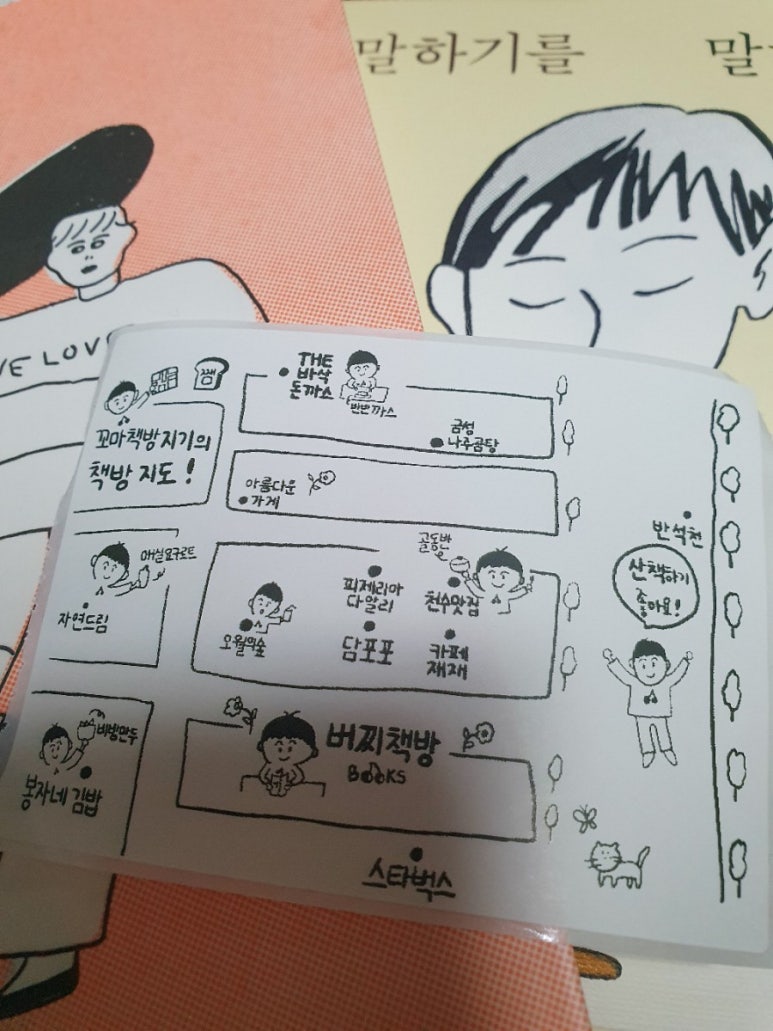 말하기를 말
VE LOV
THE
바삭
돈까스
반반까스
쨈
꼬마책방지기의
책방 지도!
금성
나주곰탕
아름다운
가게
반석천
산책하기
좋아요!
매실요구르트
자연드림
골동반
피제리아
다알리
천수맛집
오월의숲
담포포
카페
재재
비빔만두
봉자네 김밥
버찌책방
BOOKS
스타벅스